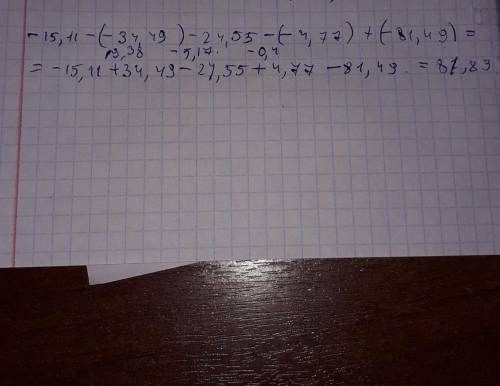 -15,11-(-34,49)-24,55-(-4,77)+(-81,49)=
19,38 -5,17. -0,4
=-15,11+34,49-24,55+4,77-81,49.=81,89